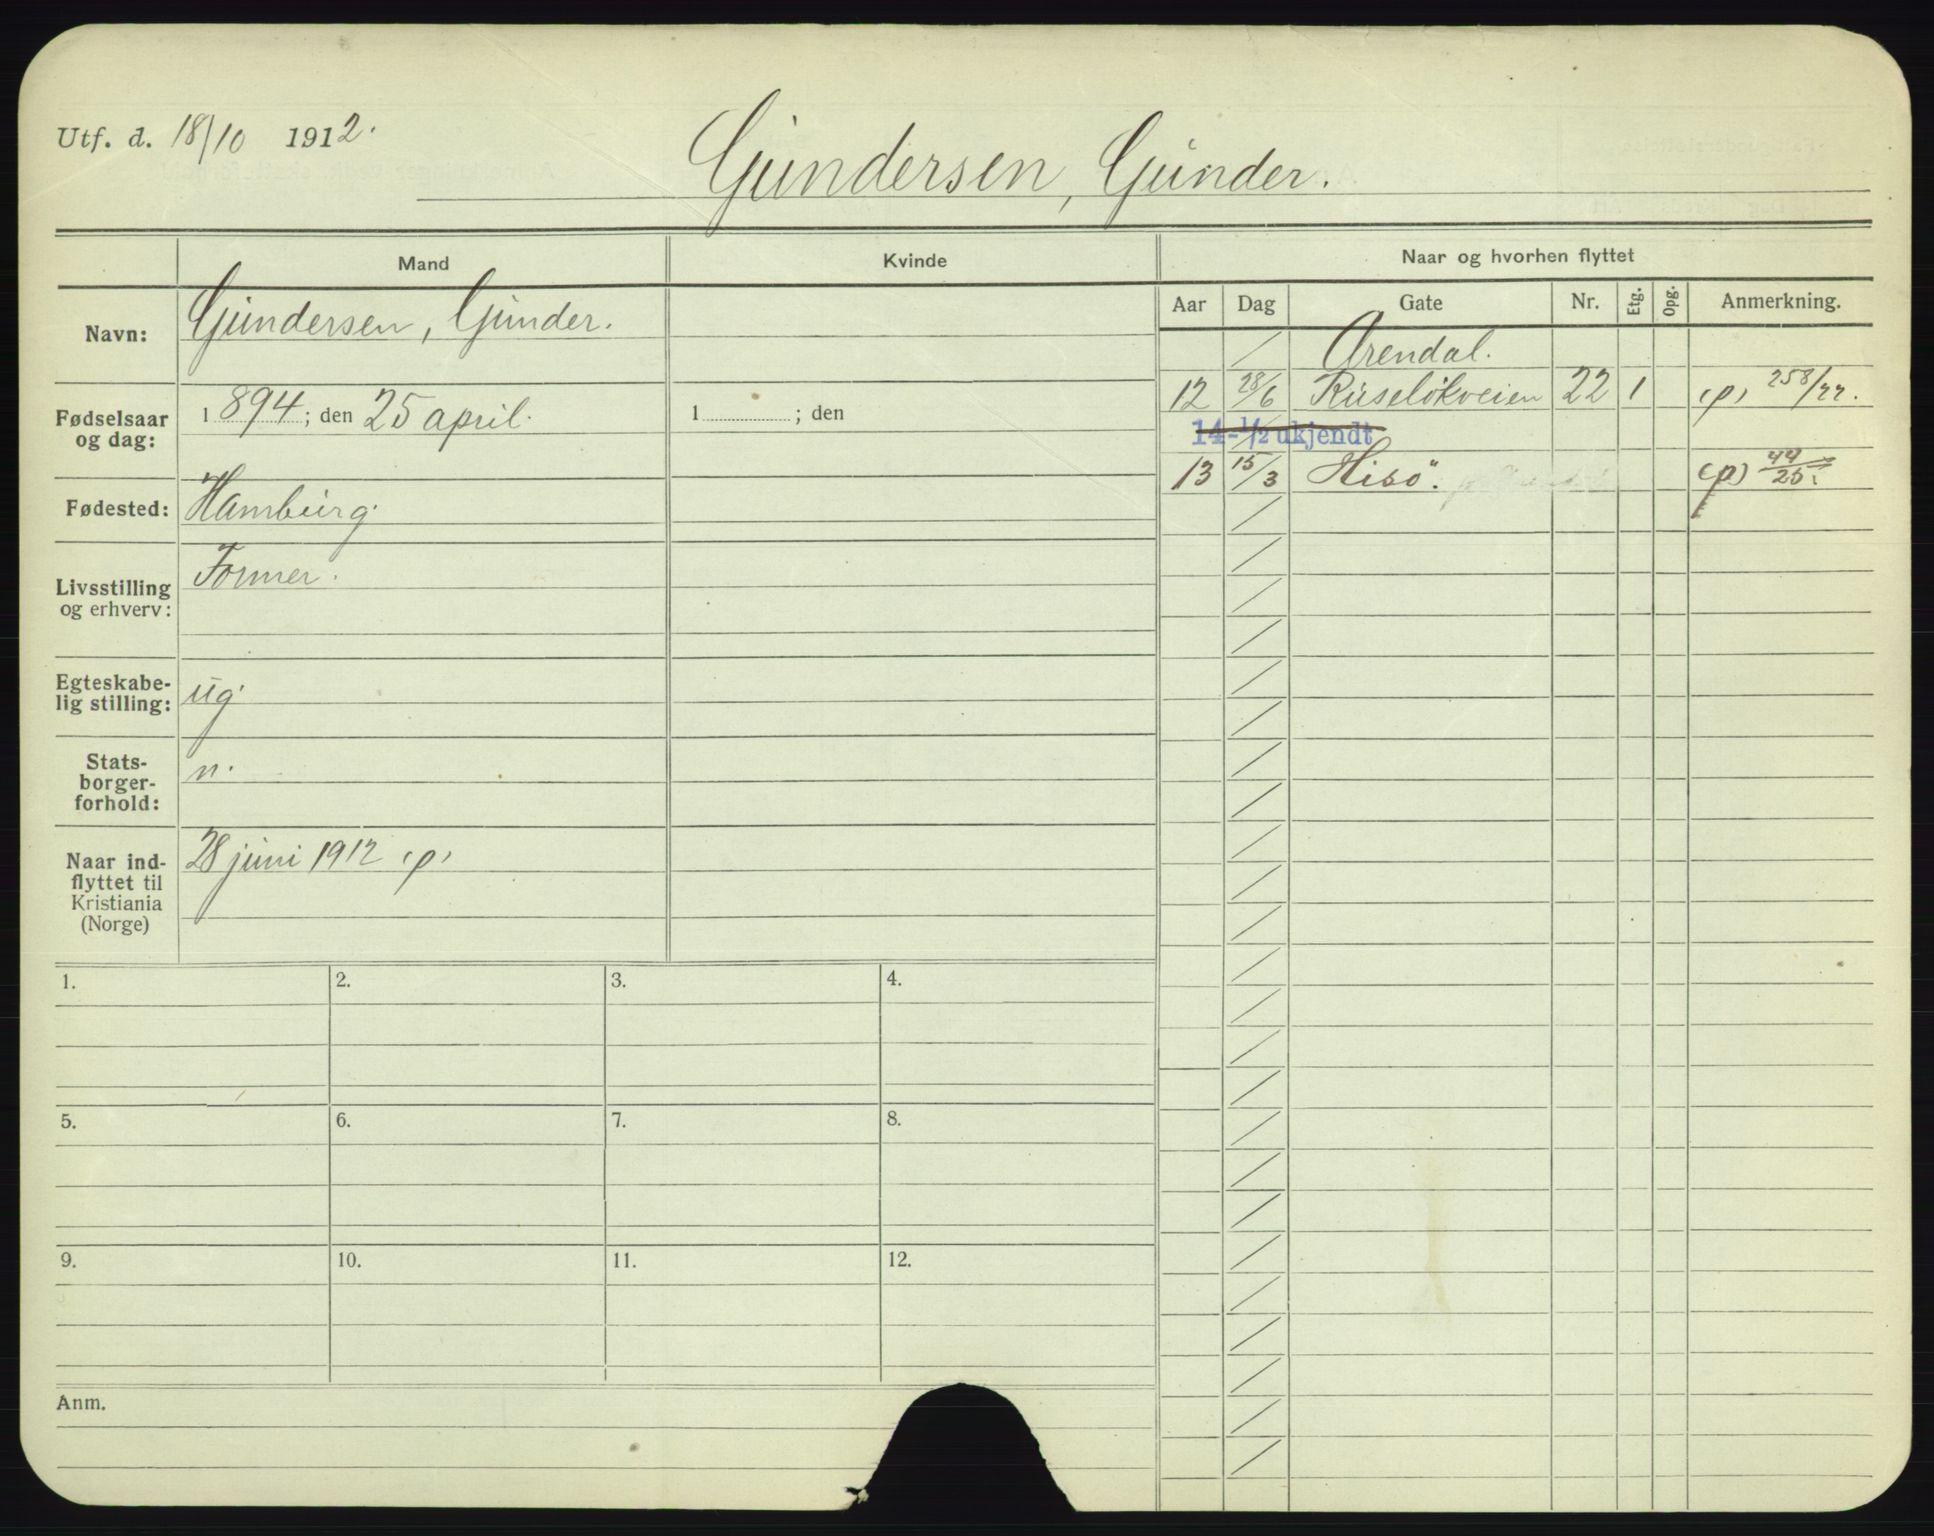 Utf. d. 18/10 1912.
Gundersen, Gunder.
Mand Kvinde Naar og hvorhen flyttet
Aar Dag Gate Nr. Etg. Opg. Anmerkning.
Navn: Gundersen, Gunder.
Arendal.
Fødselsaar og dag: 1894; den 25 april. 1 ; den
12 28/6 Ruseløkveien 22 1 (p) 258/22.
14-1/2 ukjendt
13 15/3 Hisø. (p) 44/25.
Fødested: Hamburg.
Livsstilling og erhverv: Former.
Egteskabe-
lig stilling: ug.
Stats-
borger-
forhold: n.
Naar ind-
flyttet til
Kristiania
(Norge) 28 juni 1912 (p)
1. 2. 3. 4.
5. 6. 7. 8.
9. 10. 11. 12.
Anm.